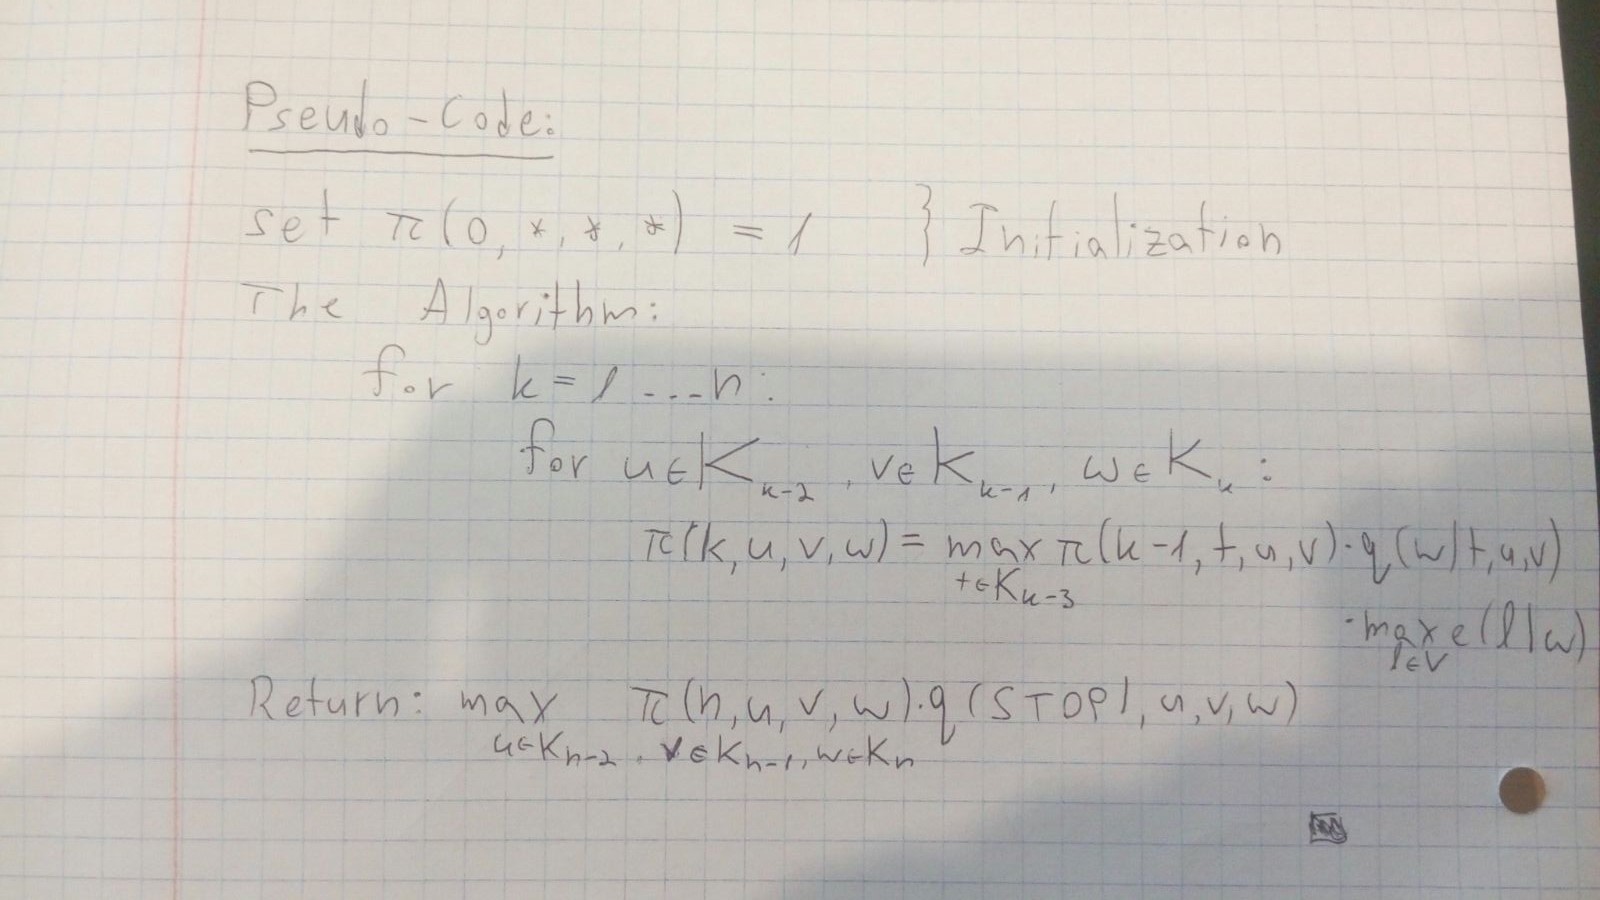 Pseudo-Code:
set π(0, *, *, *) = 1 } Initialization
The Algorithm:
for k = 1 ... n:
for u∈K_{k-2}, v∈K_{k-1}, w∈K_k:
π(k, u, v, w) = max_{t∈K_{k-3}} π(k-1, t, u, v) · q(w|t, u, v)
· max_{l∈V} e(l|w)
Return: max_{u∈K_{n-2}, v∈K_{n-1}, w∈K_n} π(n, u, v, w) · q(STOP|, u, v, w)